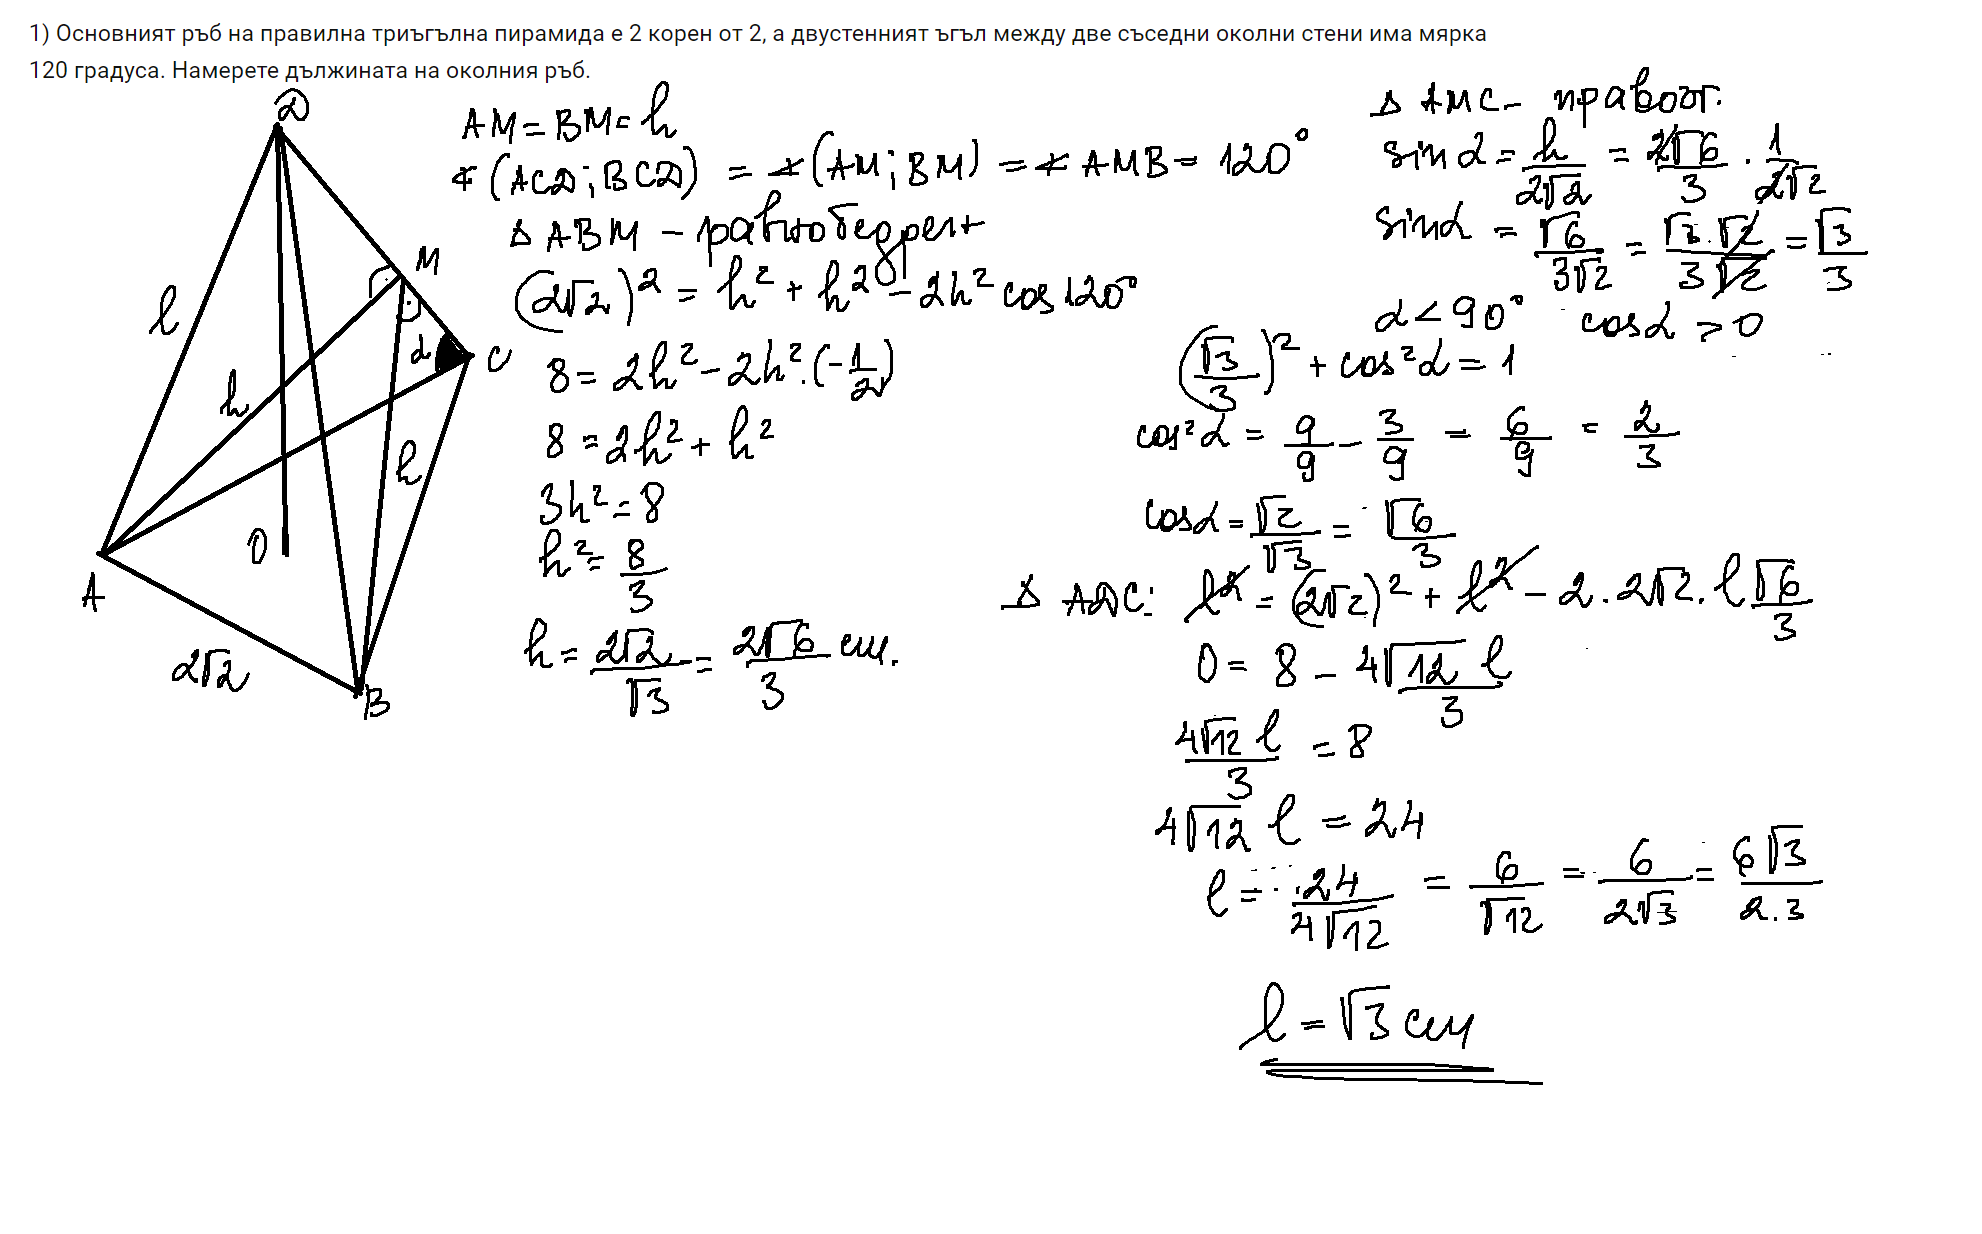 1) Основният ръб на правилна триъгълна пирамида е 2 корен от 2, а двустенният ъгъл между две съседни околни стени има мярка
120 градуса. Намерете дължината на околния ръб.
D
M
C
α
l
h
h
O
A
B
2√2
AM = BM = h
∢(ACD; BCD) = ∢(AM; BM) = ∢AMB = 120°
△ABM – равнобедрен
(2√2)² = h² + h² – 2h² cos 120°
8 = 2h² – 2h².(–1/2)
8 = 2h² + h²
3h² = 8
h² = 8/3
h = 2√2/√3 = 2√6/3 см.
△ AMC – правоъг.
sin α = h/2√2 = 2√6/3 . 1/2√2
sin α = √6/3√2 = √3.√2/3√2 = √3/3
α < 90° cos α > 0
(√3/3)² + cos²α = 1
cos²α = 9/9 – 3/9 = 6/9 = 2/3
cos α = √2/√3 = √6/3
△ ADC: l² = (2√2)² + l² – 2.2√2.l √6/3
0 = 8 – 4√12 l/3
4√12 l/3 = 8
4√12 l = 24
l = 24/4√12 = 6/√12 = 6/2√3 = 6√3/2.3
l = √3 см